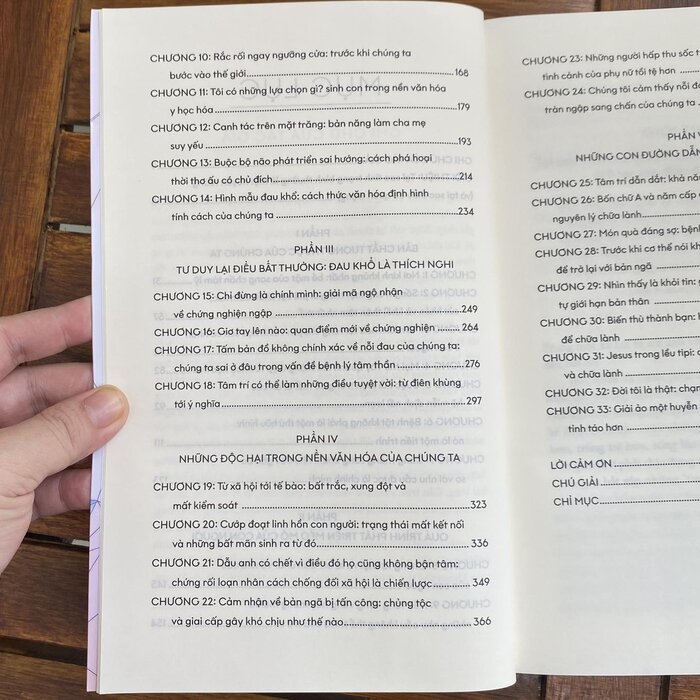 CHƯƠNG 10: Rắc rối ngay ngưỡng cửa: trước khi chúng ta
bước vào thế giới 168
CHƯƠNG 11: Tôi có những lựa chọn gì? sinh con trong nền văn hóa
y học hóa 179
CHƯƠNG 12: Canh tác trên mặt trăng: bản năng làm cha mẹ
suy yếu 193
CHƯƠNG 13: Buộc bộ não phát triển sai hướng: cách phá hoại
thời thơ ấu có chủ đích 214
CHƯƠNG 14: Hình mẫu đau khổ: cách thức văn hóa định hình
tính cách của chúng ta 234
PHẦN III
TƯ DUY LẠI ĐIỀU BẤT THƯỜNG: ĐAU KHỔ LÀ THÍCH NGHI
CHƯƠNG 15: Chỉ đừng là chính mình: giải mã ngộ nhận
về chứng nghiện ngập 249
CHƯƠNG 16: Giơ tay lên nào: quan điểm mới về chứng nghiện 264
CHƯƠNG 17: Tấm bản đồ không chính xác về nỗi đau của chúng ta:
chúng ta sai ở đâu trong vấn đề bệnh lý tâm thần 276
CHƯƠNG 18: Tâm trí có thể làm những điều tuyệt vời: từ điên khùng
tới ý nghĩa 297
PHẦN IV
NHỮNG ĐỘC HẠI TRONG NỀN VĂN HÓA CỦA CHÚNG TA
CHƯƠNG 19: Từ xã hội tới tế bào: bất trắc, xung đột và
mất kiểm soát 323
CHƯƠNG 20: Cướp đoạt linh hồn con người: trạng thái mất kết nối
và những bất mãn sinh ra từ đó 336
CHƯƠNG 21: Dẫu anh có chết vì điều đó họ cũng không bận tâm:
chứng rối loạn nhân cách chống đối xã hội là chiến lược 349
CHƯƠNG 22: Cảm nhận về bản ngã bị tấn công: chủng tộc
và giai cấp gây khó chịu như thế nào 366
CHƯƠNG 23: Những người hấp thu sốc
tình cảnh của phụ nữ tồi tệ hơn
CHƯƠNG 24: Chúng tôi cảm thấy nỗi
tràn ngập sang chấn của chúng ta
PHẦN
NHỮNG CON ĐƯỜNG
CHƯƠNG 25: Tâm trí dẫn dắt: khả
CHƯƠNG 26: Bốn chữ A và năm
nguyên lý chữa lành
CHƯƠNG 27: Món quà đáng sợ:
CHƯƠNG 28: Trước khi cơ thể nói
để trở lại với bản ngã
CHƯƠNG 29: Nhìn thấy là khỏi tin:
tự giới hạn bản thân
CHƯƠNG 30: Biến thù thành bạn:
để chữa lành
CHƯƠNG 31: Jesus trong lều tipi:
và chữa lành
CHƯƠNG 32: Đời tôi là thật:
CHƯƠNG 33: Giải ảo một huyền
tỉnh táo hơn
LỜI CẢM ƠN
CHÚ GIẢI
CHỈ MỤC